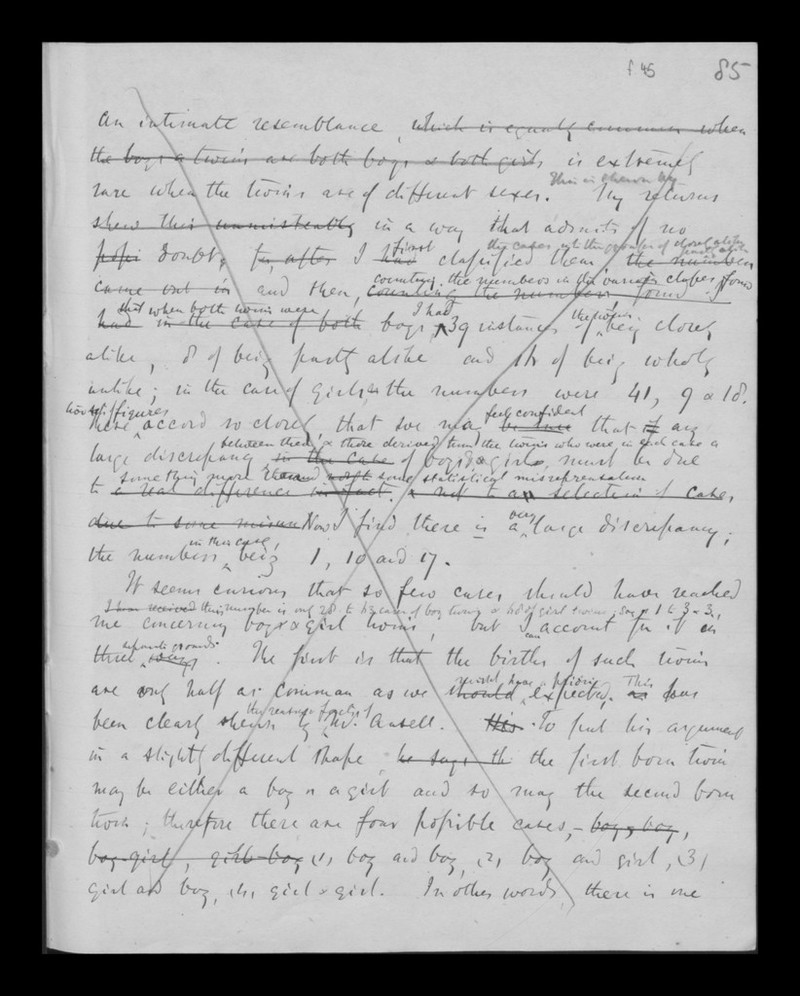 f 45 85
An intimate resemblance, which is equally common when
the boys & twins are both boys & both girls is extremely
This is shown by
rare when the twins are of different sexes. My returns
shew this unmistakeably in a way that admits of no
first the cases into the groups of closely alike
doubt, for, after I had classified them, the numbers
counting the numbers in the various classes, I found
came out in and then, counting the numbers found
that when both twins were I had
had in the case of both boys 39 instances of being closely
alike, 8 of being partly alike and of being wholly
unlike; in the case of girls the numbers were 41, 9 & 18.
figures feel confident
These accord so closely that we may be sure that if any
between them, & those derived from the twins who were in each case a
large discrepancy in the case of boy & girl, must be due
something more than some statistical misrepresentation
to a real difference in fact, & not to a selection of cases,
very
due to some Now I find there is a large discrepancy;
in this case,
the numbers being 1, 10 and 17.
It seems curious that so few cases should have reached
I have received this number is only 28 to cases of boy twins & 68 of girl twins, say 1 to 3 & 3,
me concerning boy & girl twins, but I can account for it on
grounds
three ways. The first is that the births of such twins
might have a priori This
are only half as common as we should expected. as has
the reason for it
been clearly shewn by Mr. Ansell. This To put his argument
in a slightly different shape, he says th the first born twin
may be either a boy or a girl and so may the second born
twin; therefore there are four possible cases,– boy, boy,
boy-girl, girl-boy (1, boy and boy, (2, boy and girl, (3,
girl and boy, (4, girl & girl. In other words, there is one